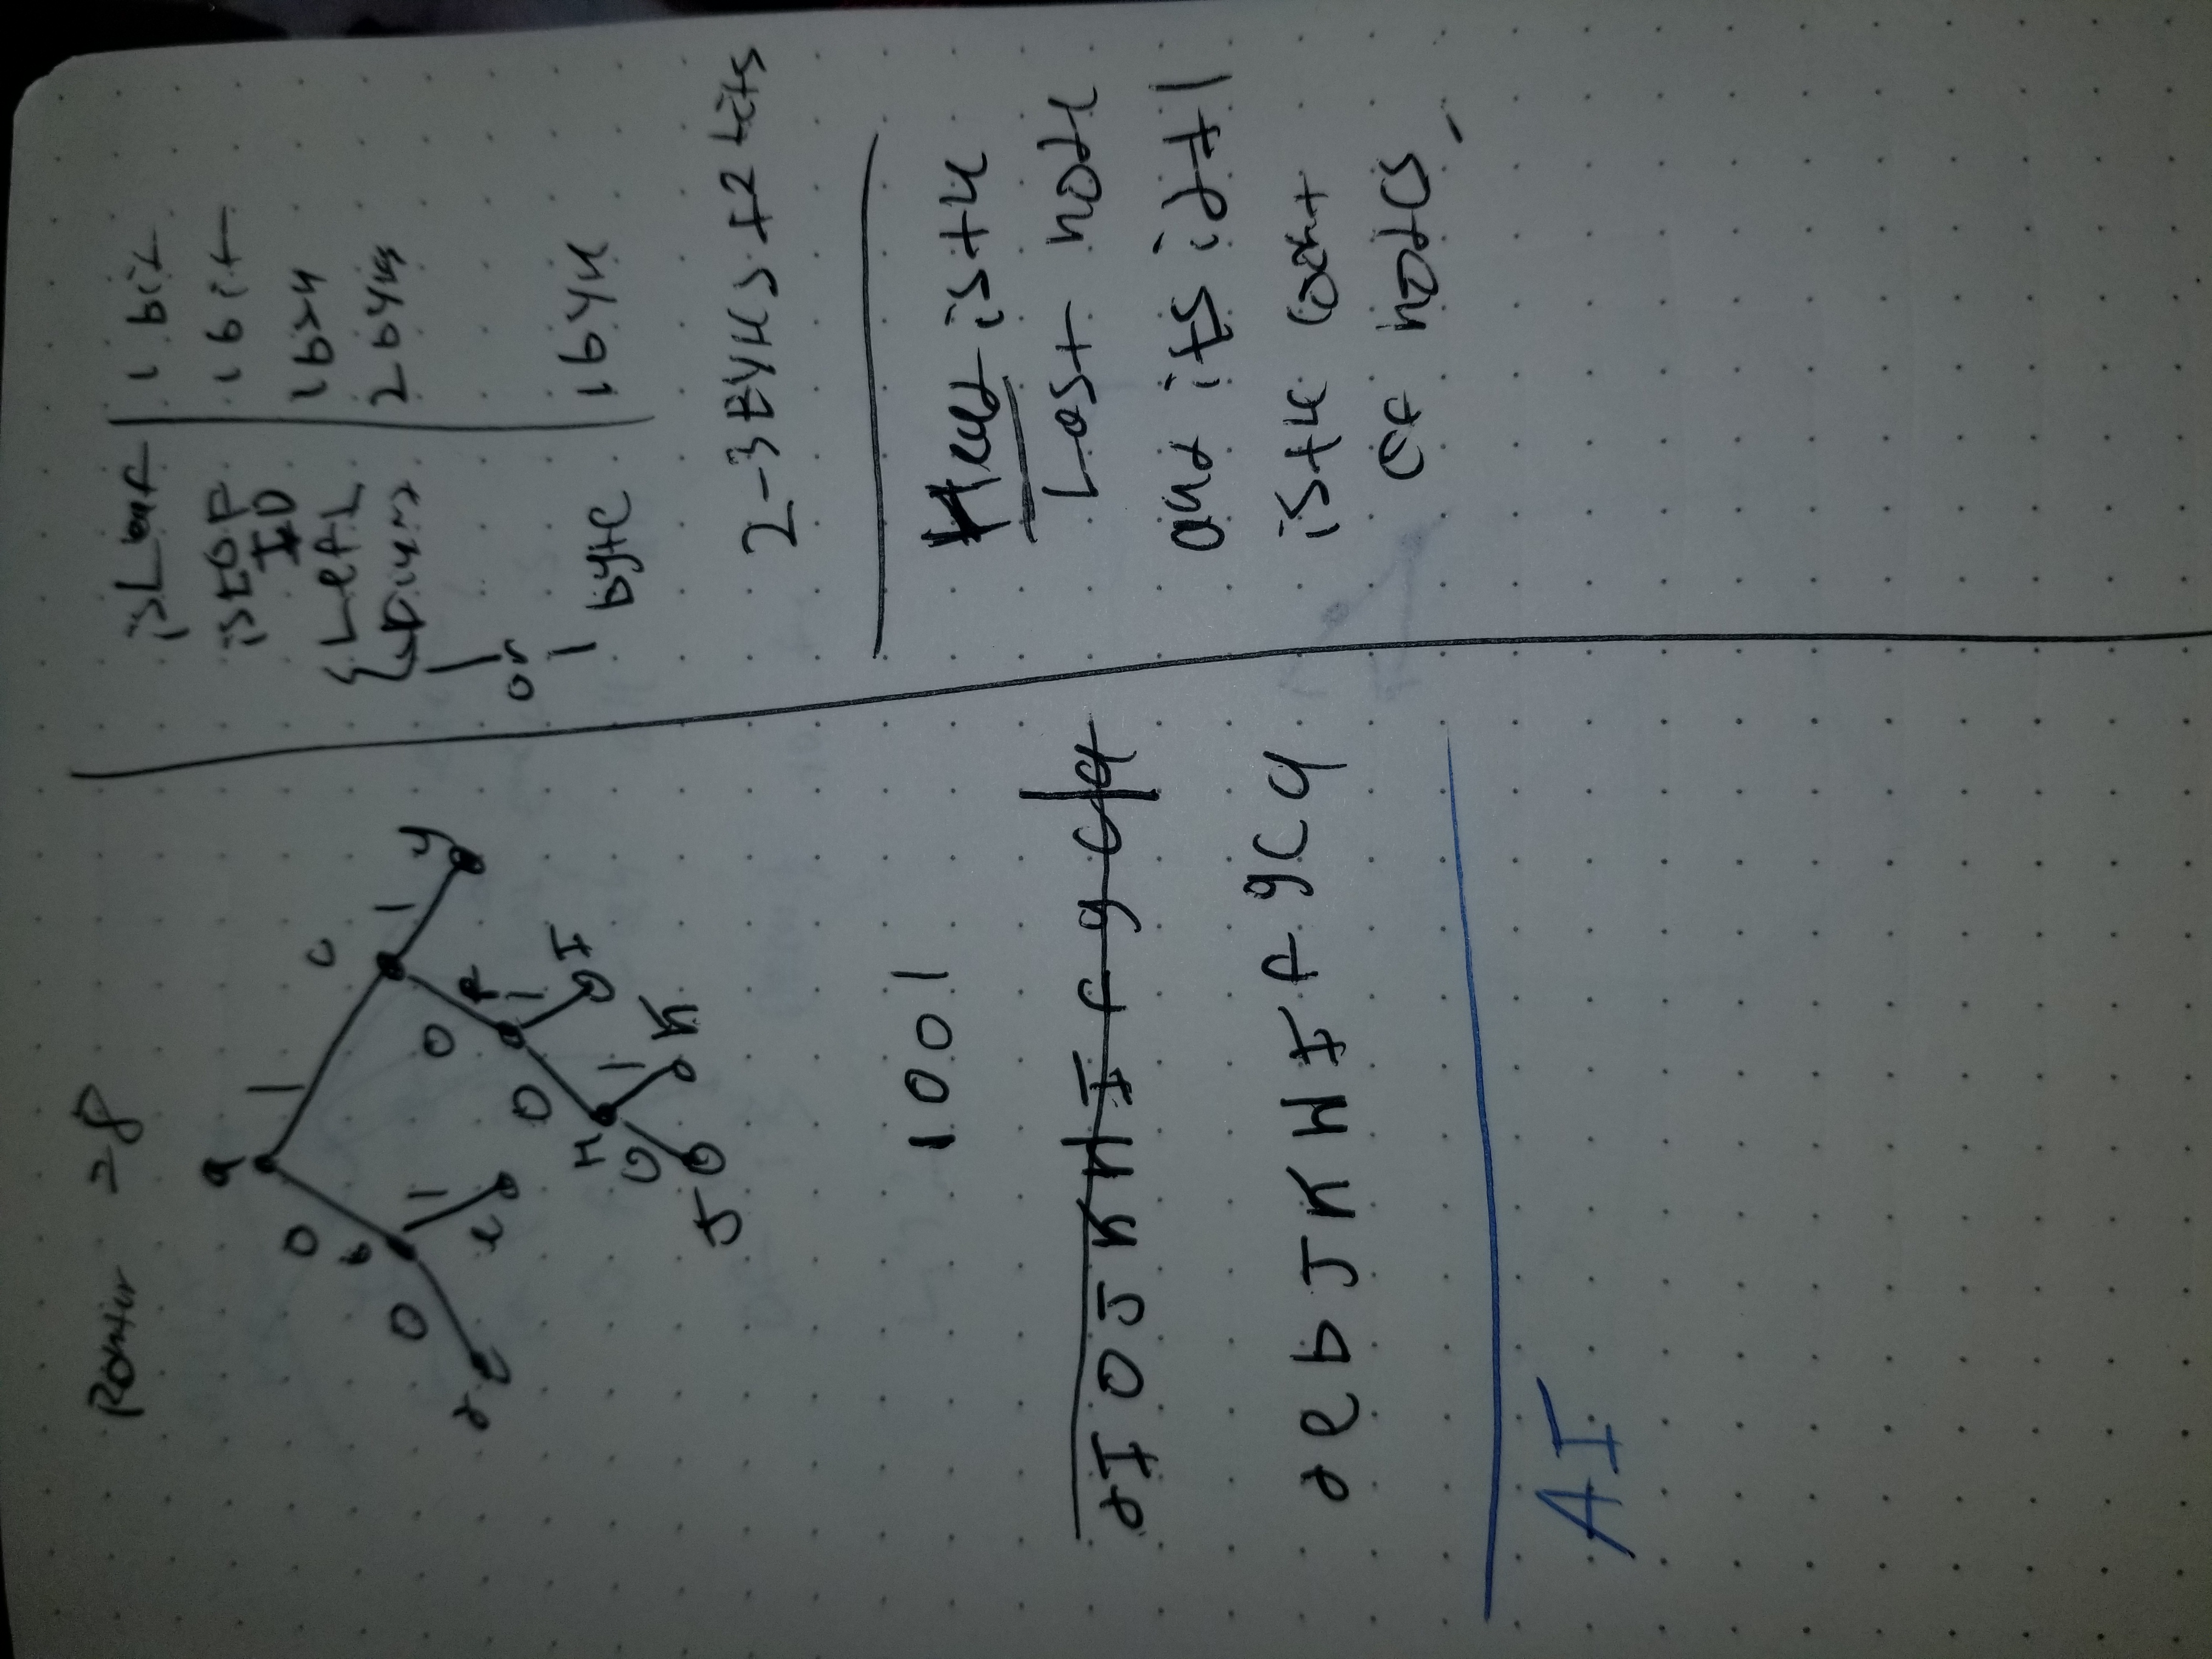 Pointer = 8
a
0 1
b c
0 1 0 1
d e f g
0 1
H I
0 1
J K
1001
d I O J K H I f g c a
d e b J K H I f g c a
AI
isLeaf 1 bit
isEOF 1 bit
ID
Left
2 bytes
or
byte 1 byte
2-3 Bytes + 2 bits
Head is the
Last node
and its id + 1
is the count
of nodes